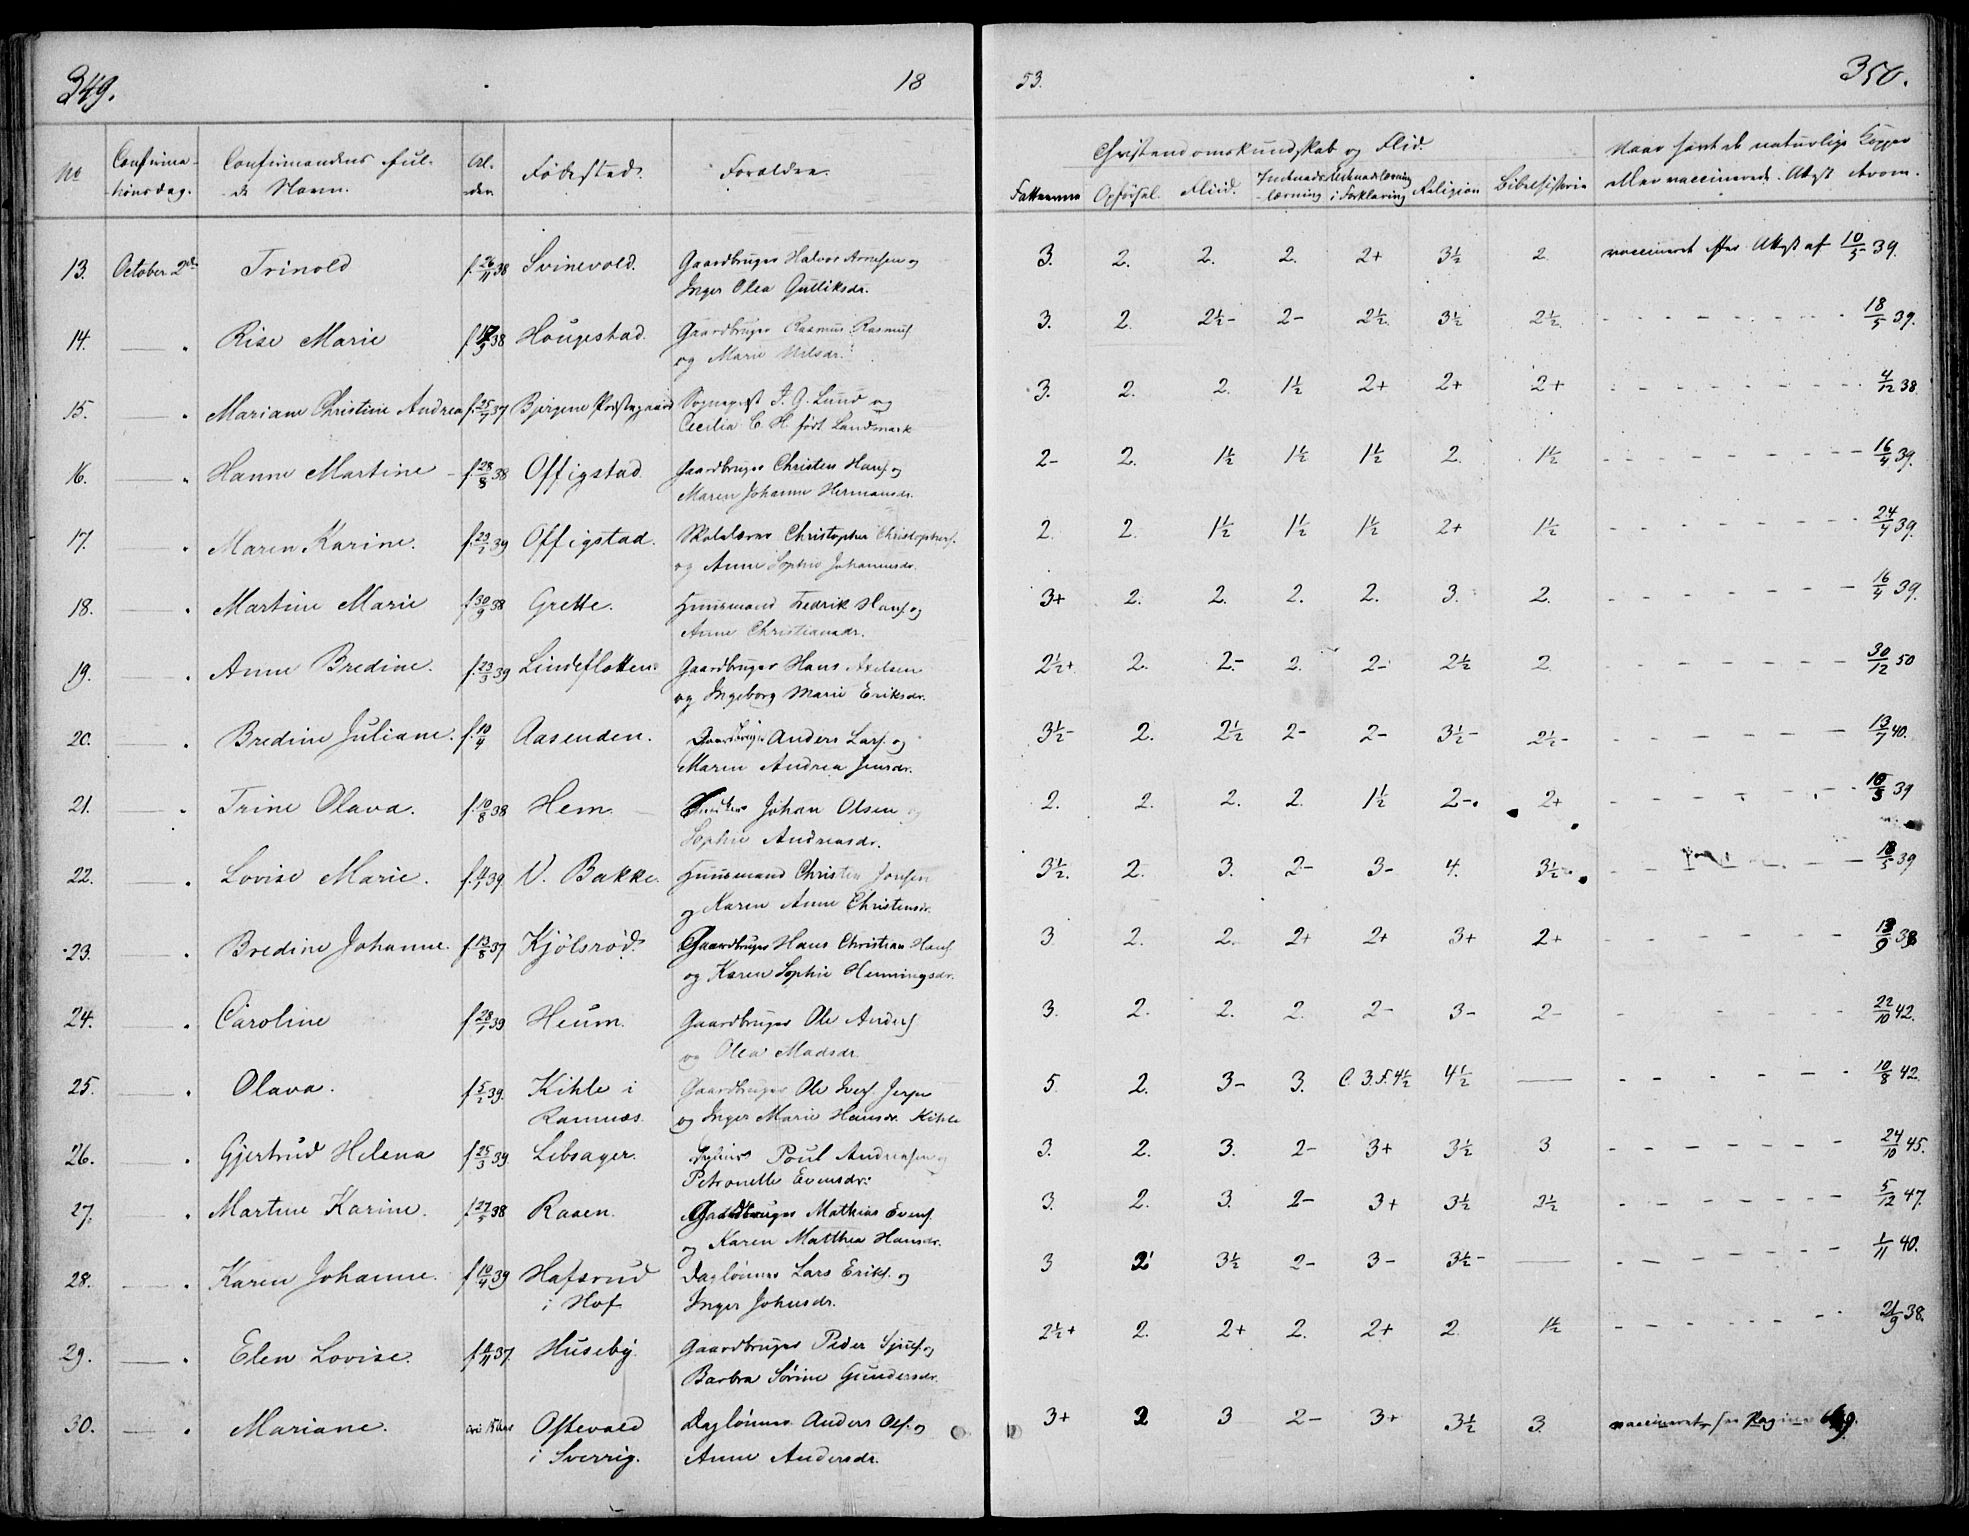 349. 18 53. 350.
No Confirma- Confirmandens ful- Al- Fødested. Forældre. Christendomskundskab og Flid. Naar havt de naturlige Kopper
tionsdag. de Navn. der. Fatteevne Opførsel. Fliid. Indenads- læsning i Forklaring Religion Bibelhistorie eller vaccinerede. Attest derom.
13. October 2d Trinold f. 26/11 38 Svinevold. Gaardbruger Halvor Arnesen og 3. 2. 2. 2. 2+ 3½ 2. vaccineret efter Attest af 10/5 39.
Inger Olea Gulliksdr.
14. — " Rise Marie f. 17/5 38 Hougestad. Gaardbruger Rasmus Rasmus. 3. 2. 2½- 2- 2½. 3½ 2½. - - - 18/5 39.
og Marie Nilsdr.
15. — " Mariane Christine Andrea f. 25/7 37 Bjergene Præstegaard Sognepræst F. G. Lund og 3. 2. 2. 1½ 2+ 2+ 2+ - - - 4/12 38
Cecilia C. H. født Landmark
16. — " Hanne Martine f. 28/8 38 Offigstad Gaardbruger Christen Hans. og 2- 2. 1½ 1½ 1½ 2. 1½ - - - 16/4 39.
Maren Johanne Hermansdr.
17. — " Maren Karine. f. 23/1 39 Offigstad. Skolelærer Christopher Christophers. 2. 2. 1½ 1½ 1½ 2+ 1½ - - - 24/4 39.
og Anne Sophie Johannesdr.
18. — " Martine Marie f. 30/9 38 Grette. Huusmand Fredrik Hans. og 3+ 2. 2. 2. 2. 3. 2. - - - 16/4 39.
Anne Christiansdr.
19. — " Anne Bredine. f. 23/3 39 Lindeflotten. Gaardbruger Hans Axelsen 2½+. 2. 2.- 2. 2- 2½ 2. - - - 30/12 50
og Ingeborg Marie Eriksdr.
20. — " Bredine Juliane. f. 10/4 Aasenden. Gaardbruger Anders Lars. og 3½- 2. 2½ 2- 2- 3½- 2½- - - - 13/7 40.
Maren Andrea Jensdr.
21. — " Trine Olava. f. 10/8 38 Hem. Johan Olsen og 2. 2. 2. 2. 1½ 2-. 2+ - - - 10/5 39
Sophie Andreasdr.
22. — " Lovise Marie. f. 4/1 39. V. Bakke. Huusmand Christen Jonsen 3½. 2. 3. 2- 3- 4. 3½- - - - 18/5 39
og Karen Anne Christensdr.
23. — " Bredine Johanne. f. 13/8 37 Kjölsröd. Gaardbruger Hans Christian Hans. 3. 2. 2. 2+ 2+ 3+ 2+ - - - 13/9 38
og Karen Sophie Henningsdr.
24. — " Caroline f. 28/1 39 Heum. Gaardbruger Ole Anders. 3. 2. 2. 2. 2- 3- 2- - - - 22/10 42.
og Olea Madsdr.
25. — " Olava. f. 5/2 39. Kihle i Gaardbruger Ole Ivers. Jerpe 5. 2. 3- 3. C. 3.5.4½ 4½ — - - - 10/8 42.
Ramnæs. og Inger Marie Hansdr. Kihle
26. — " Gjertrud Helena f. 25/3 39 Lebsager. Poul Andreasen og 3. 2. 3. 2- 3+ 3½ 3. - - - 24/10 45.
Petronelle Evensdr.
27. — " Martine Karine. f. 27/5 38 Raaen. Gaardbruger Mathias Evens. 3. 2. 3. 2- 3+ 3½ 2½ - - - 5/12 47.
og Karen Matthea Hansdr.
28. — " Karen Johanne. f. 10/4 39 Hafsrud Daglønner Lars Eriks. og 3 2 3½ 2- 3- 3½- — - - - 1/11 40.
i Hof Inger Johnsdr.
29. — " Elen Lovise. f. 4/11 37. Huseby. Gaardbruger Peder Sjuls. og 2½+ 2. 2+ 2. 2+ 2. 1½ - - - 21/9 38.
Barbra Sørine Gundersdr.
30. — " Mariane. Ostevald Daglønner Anders Ols. og 3+ 2 3 2- 3+ 3½ 3. vaccineret, see Pagina
i Sverrig. Anne Andersdr.